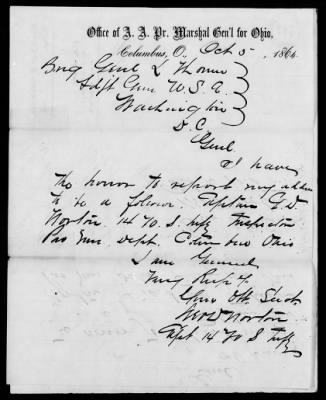 Office of A. A. Pr. Marshal Gen'l for Ohio,
Columbus, O., Oct 5, 1864
Brig Genl L Thomas
Adjt Genl U.S.A.
Washington
D.C.
Genl
I have
the honor to report my address
to be as follows. Captain G. D.
Norton. 14 U. S. Infy Inspector
Pro Mar. Dept. Columbus Ohio
I am General
Very Respy.
Your Obt. Servt.
Norton
Capt 14 U S Infy